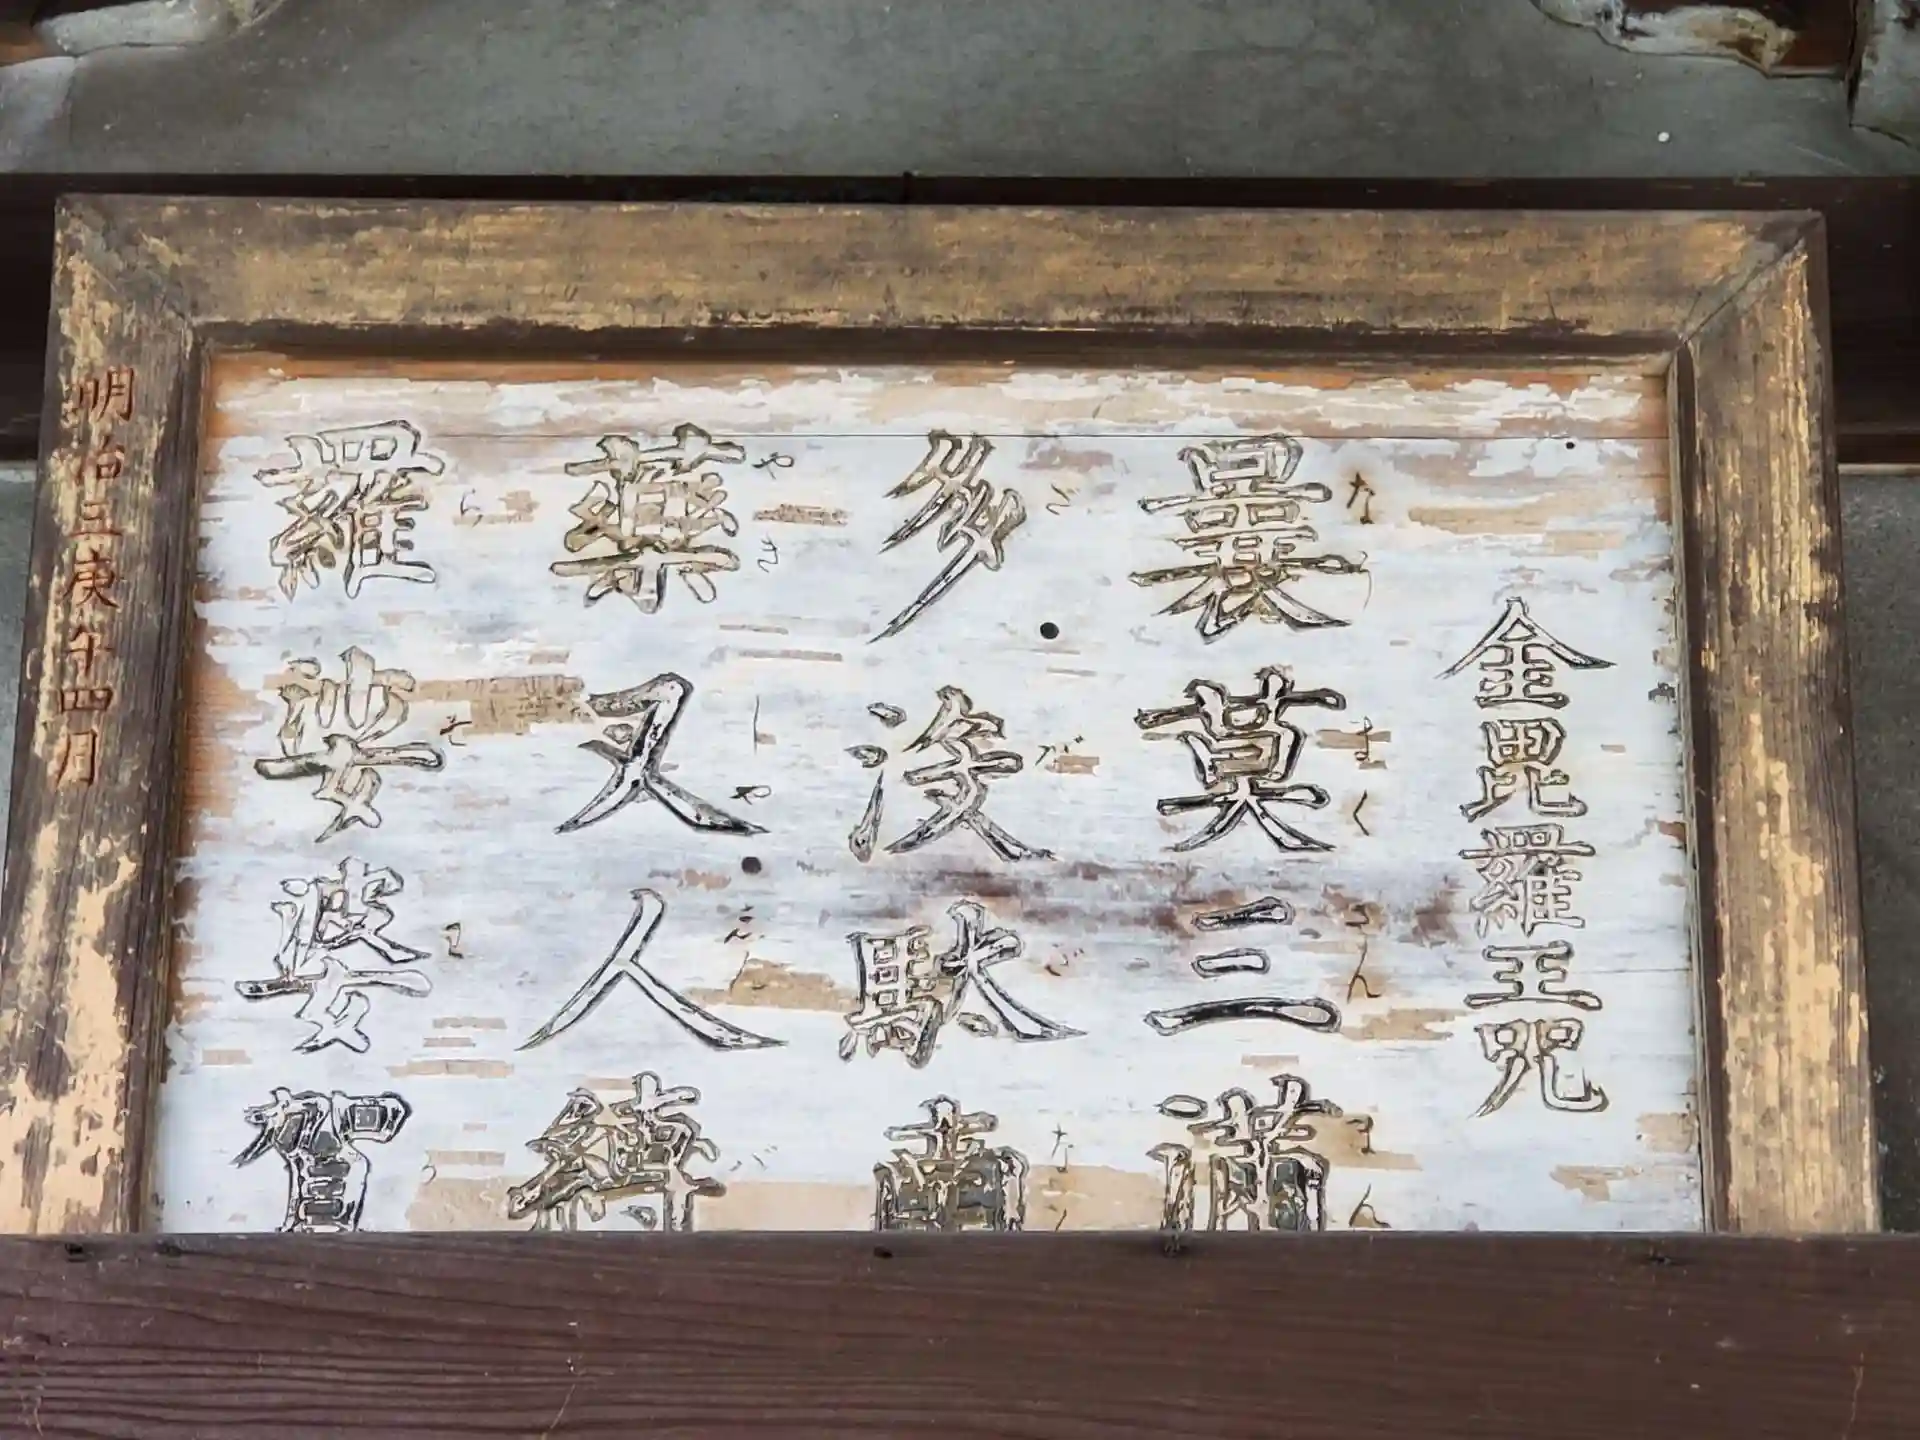 金毘羅王咒
曩莫三満
なうまくさんまん
多没駄南
たぼだなん
藥叉人縛
やきしやじんば
羅娑婆賀
らそわか
明治三庚午四月